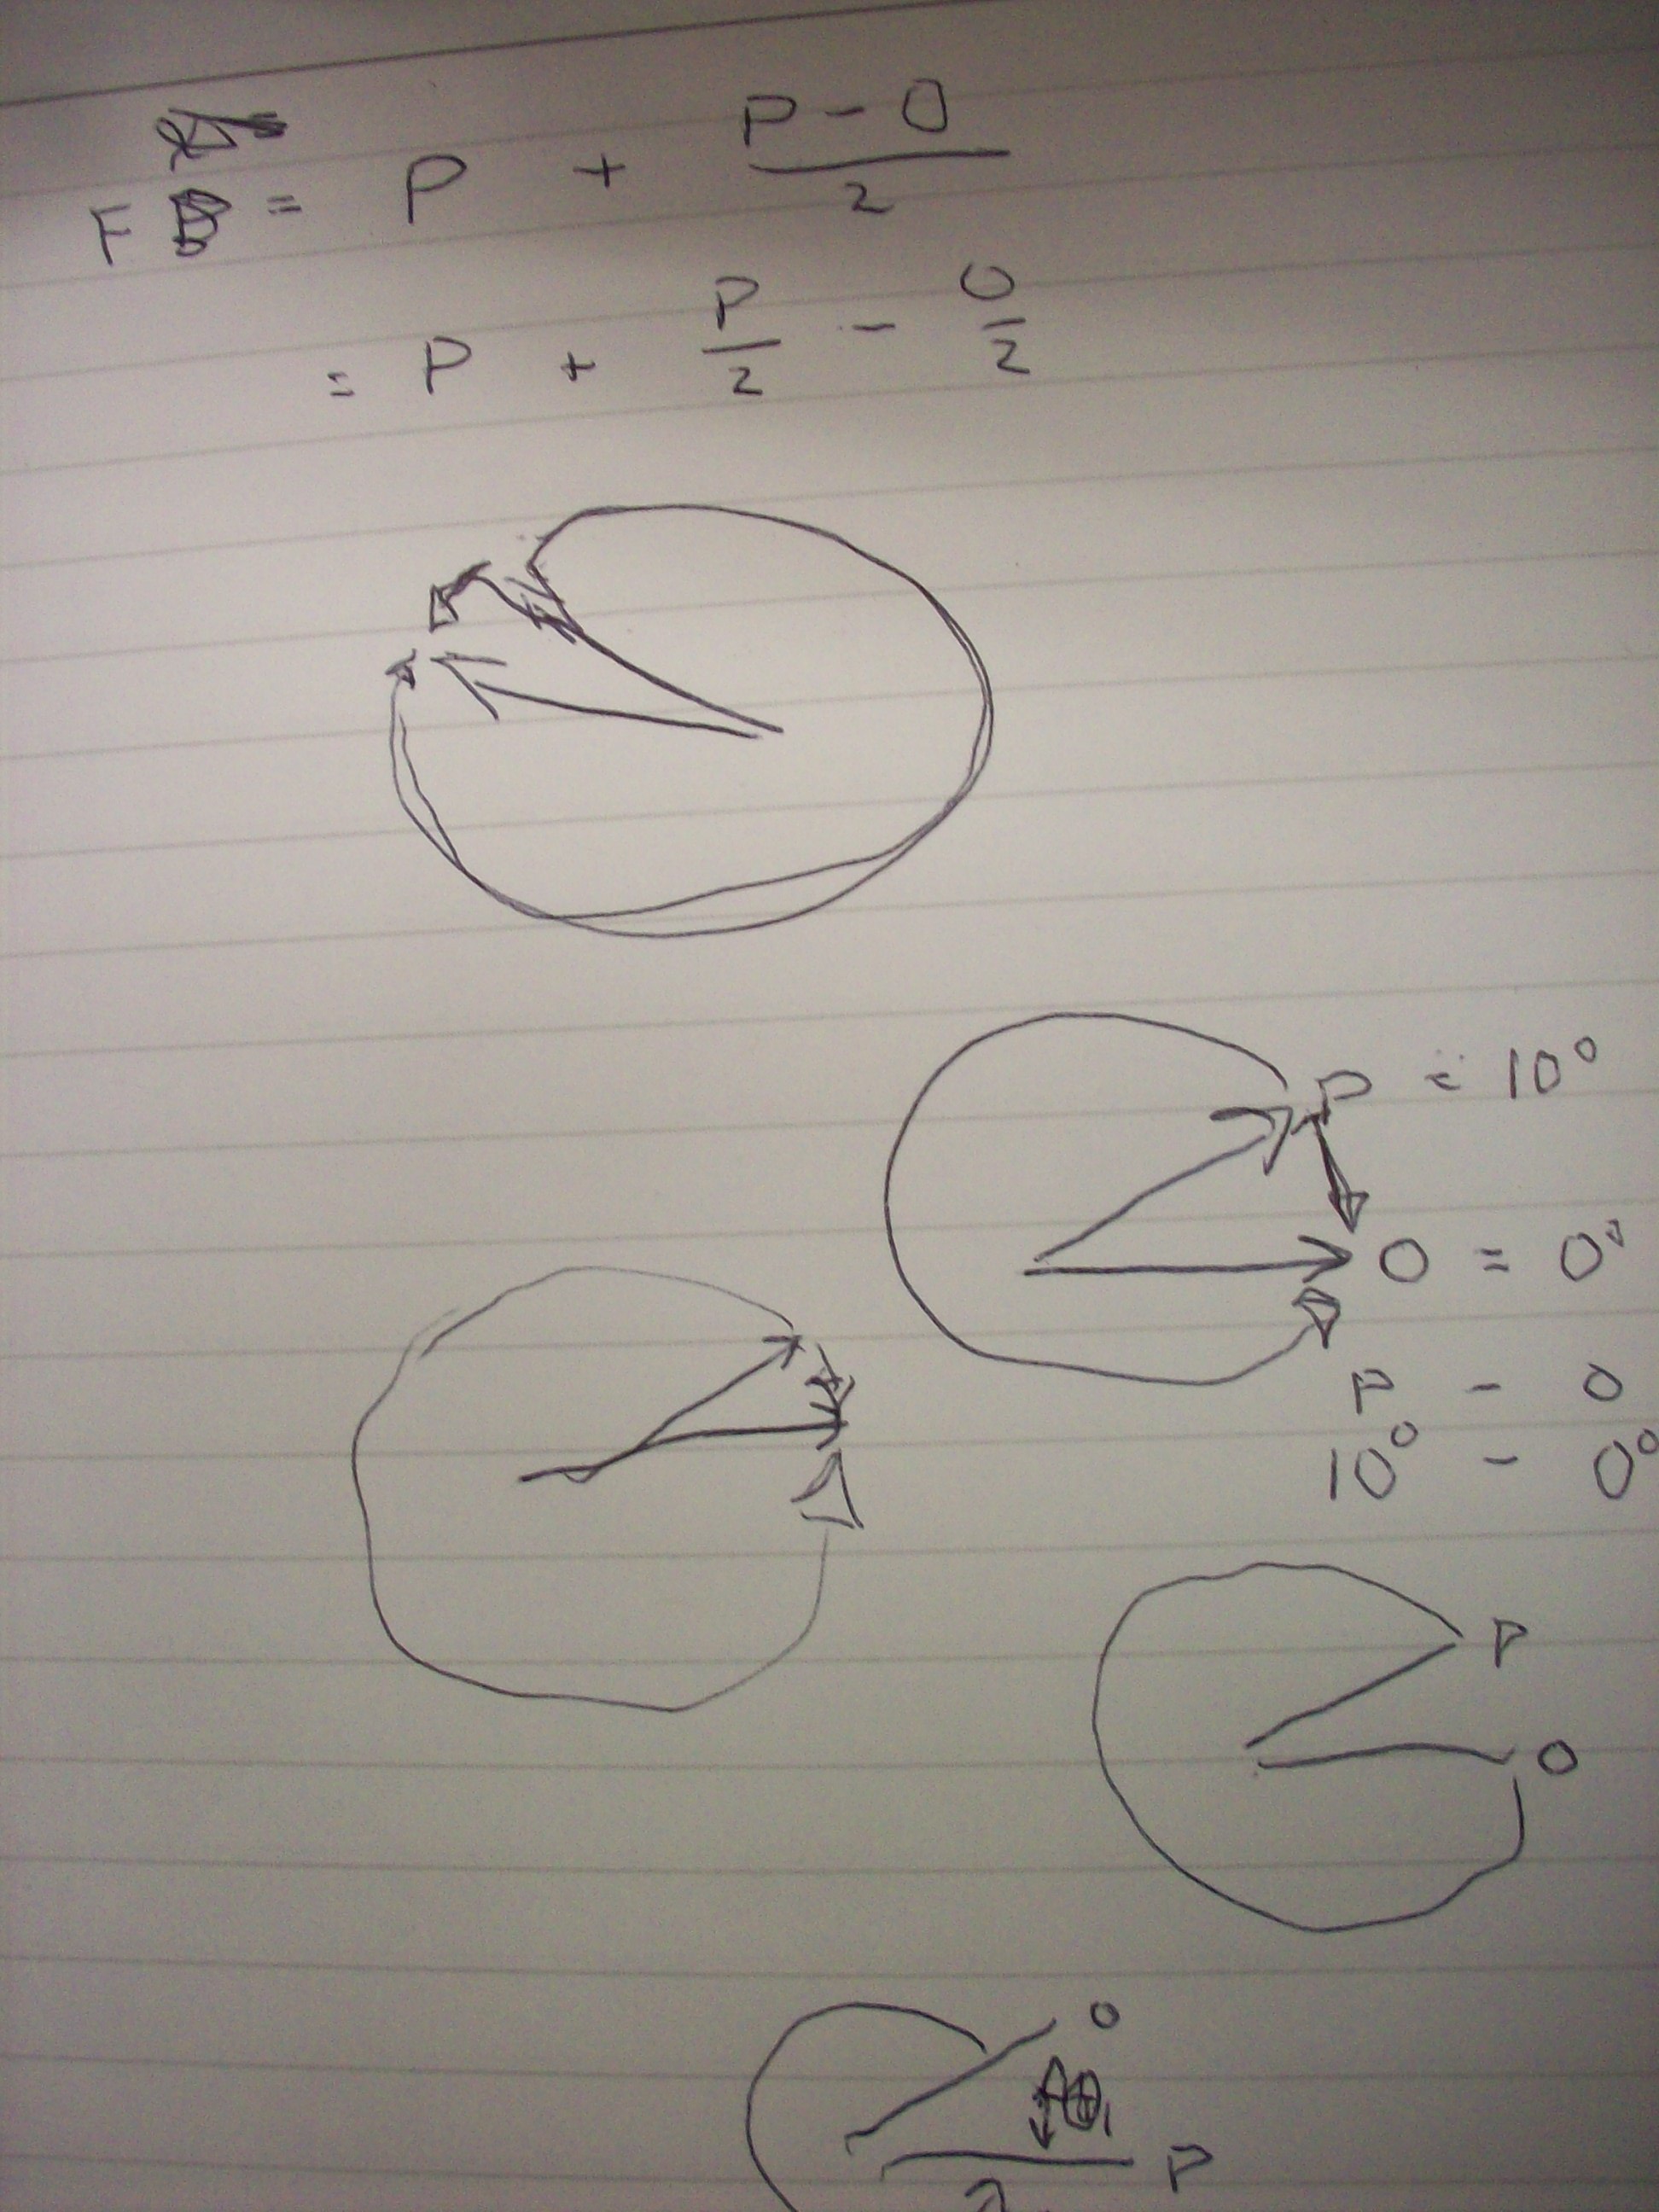 FB = P + P - O / 2
= P + P/2 - O/2
P = 10°
O = 0°
P - O
10° - 0°
P
O
O
θ₁
P